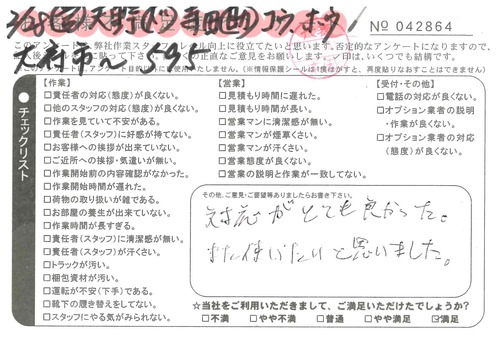 3/28(宝)天野(ジ)寺田(町)コウ、ホウ
No 042864
このアンケートは、弊社作業スタ
ル向上に役立てたいと思います。否定的なアンケートになりますので、
正直なご意見をお願いします。
(※情報保護シールは1度はがすと、再度貼りなおすことはできません)
大府市～ 535
チェックリスト
【作業】
□責任者の対応(態度)が良くない。
□他のスタッフの対応(態度)が良くない。
□作業を見ていて不安がある。
□責任者(スタッフ)に好感が持てない。
□お客様への挨拶が出来ていない。
□ご近所への挨拶・気遣いが無い。
□作業開始前の内容確認がなかった。
□作業開始時間が遅れた。
□荷物の取り扱いが雑である。
□お部屋の養生が出来ていない。
□作業時間が長すぎる。
□責任者(スタッフ)に清潔感が無い。
□責任者(スタッフ)が汗くさい。
□トラックが汚い。
□梱包資材が汚い。
□運転が不安(下手)である。
□靴下の履き替えをしてない。
□スタッフにやる気がみられない。
【営業】
□見積もり時間に遅れた。
□見積もり時間が長い。
□営業マンに清潔感が無い。
□営業マンが煙草くさい。
□営業マンが汗くさい。
□営業態度が良くない。
□営業の説明と作業が一致してない。
【受付・その他】
□電話の対応が良くない。
□オプション業者の説明
・作業が良くない。
□オプション業者の対応
(態度)が良くない。
その他、ご意見・ご要望等ありましたらお書き下さい。
対応がとても良かった。
また使いたいと思いました。
☆当社をご利用いただきまして、ご満足いただけたでしょうか?
□不満 □やや不満 □普通 □やや満足 ☑満足